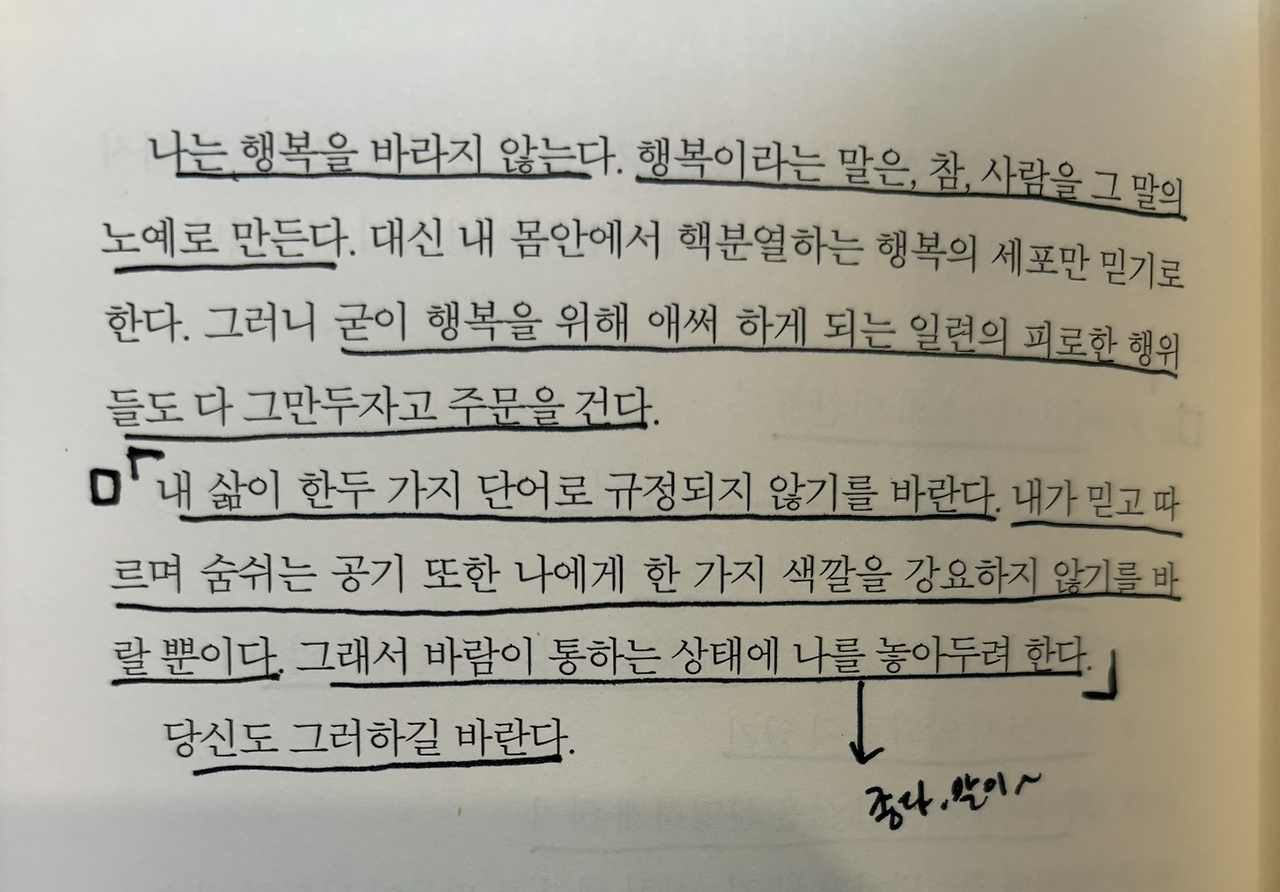 나는 행복을 바라지 않는다. 행복이라는 말은, 참, 사람을 그 말의
노예로 만든다. 대신 내 몸안에서 핵분열하는 행복의 세포만 믿기로
한다. 그러니 굳이 행복을 위해 애써 하게 되는 일련의 피로한 행위
들도 다 그만두자고 주문을 건다.
「내 삶이 한두 가지 단어로 규정되지 않기를 바란다. 내가 믿고 따
르며 숨쉬는 공기 또한 나에게 한 가지 색깔을 강요하지 않기를 바
랄 뿐이다. 그래서 바람이 통하는 상태에 나를 놓아두려 한다.」
당신도 그러하길 바란다.
좋다, 말이~